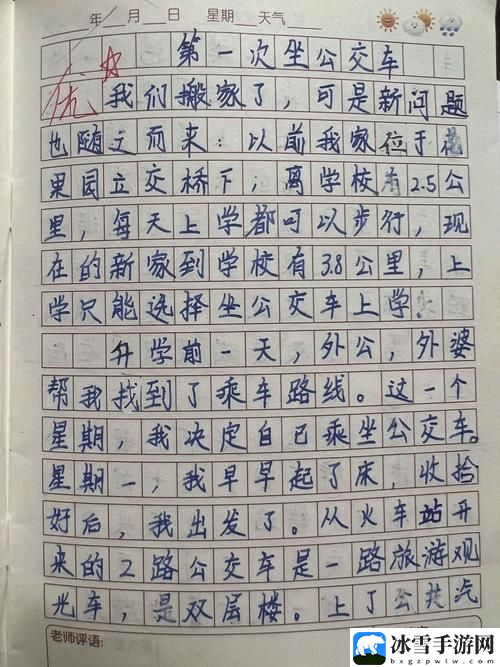 年 月 日 星期 天气
第一次坐公交车
优
我们搬家了，可是新问题
也随之而来：以前我家位于花
果园立交桥下，离学校有2.5公
里，每天上学都可以步行，现
在的新家到学校有3.8公里，上
学只能选择坐公交车上学。
升学前一天，外公，外婆
帮我找到了乘车路线。这一个
星期，我决定自己乘坐公交车。
星期一，我早早起了床，收拾
好后，我出发了。从火车站开
来的2路公交车是一路旅游观
光车，是双层楼。上了公共汽
老师评语：
冰雪手游网
bxgzpwlw.com